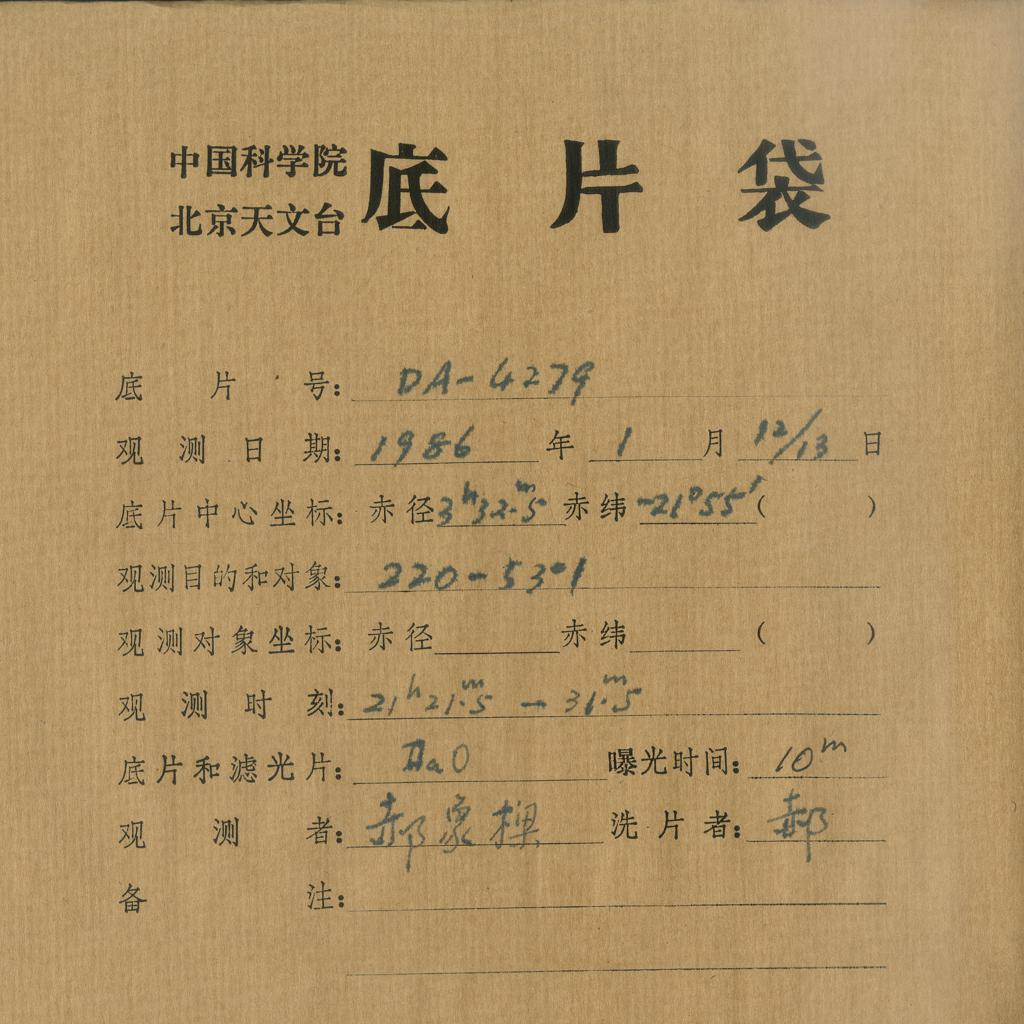 中国科学院
北京天文台 底片袋
底片号： DA-4279
观测日期： 1986 年 1 月 12/13 日
底片中心坐标： 赤径 3ʰ32ᵐ.5 赤纬 -21°55′ ( )
观测目的和对象： 220-53·1
观测对象坐标： 赤径 赤纬 ( )
观测时刻： 21ʰ21ᵐ.5 — 31ᵐ.5
底片和滤光片： IIaO 曝光时间： 10ᵐ
观测者： 郝象樑 洗片者： 郝
备注：